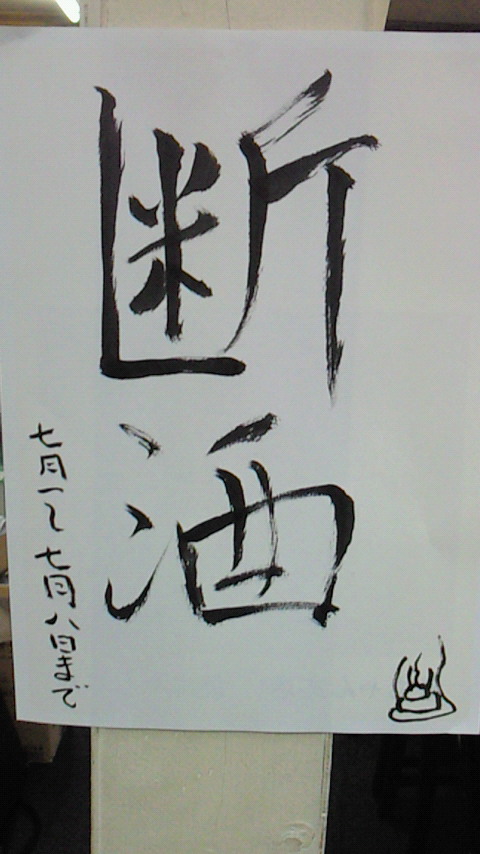 断酒
七月一〜七月八日まで